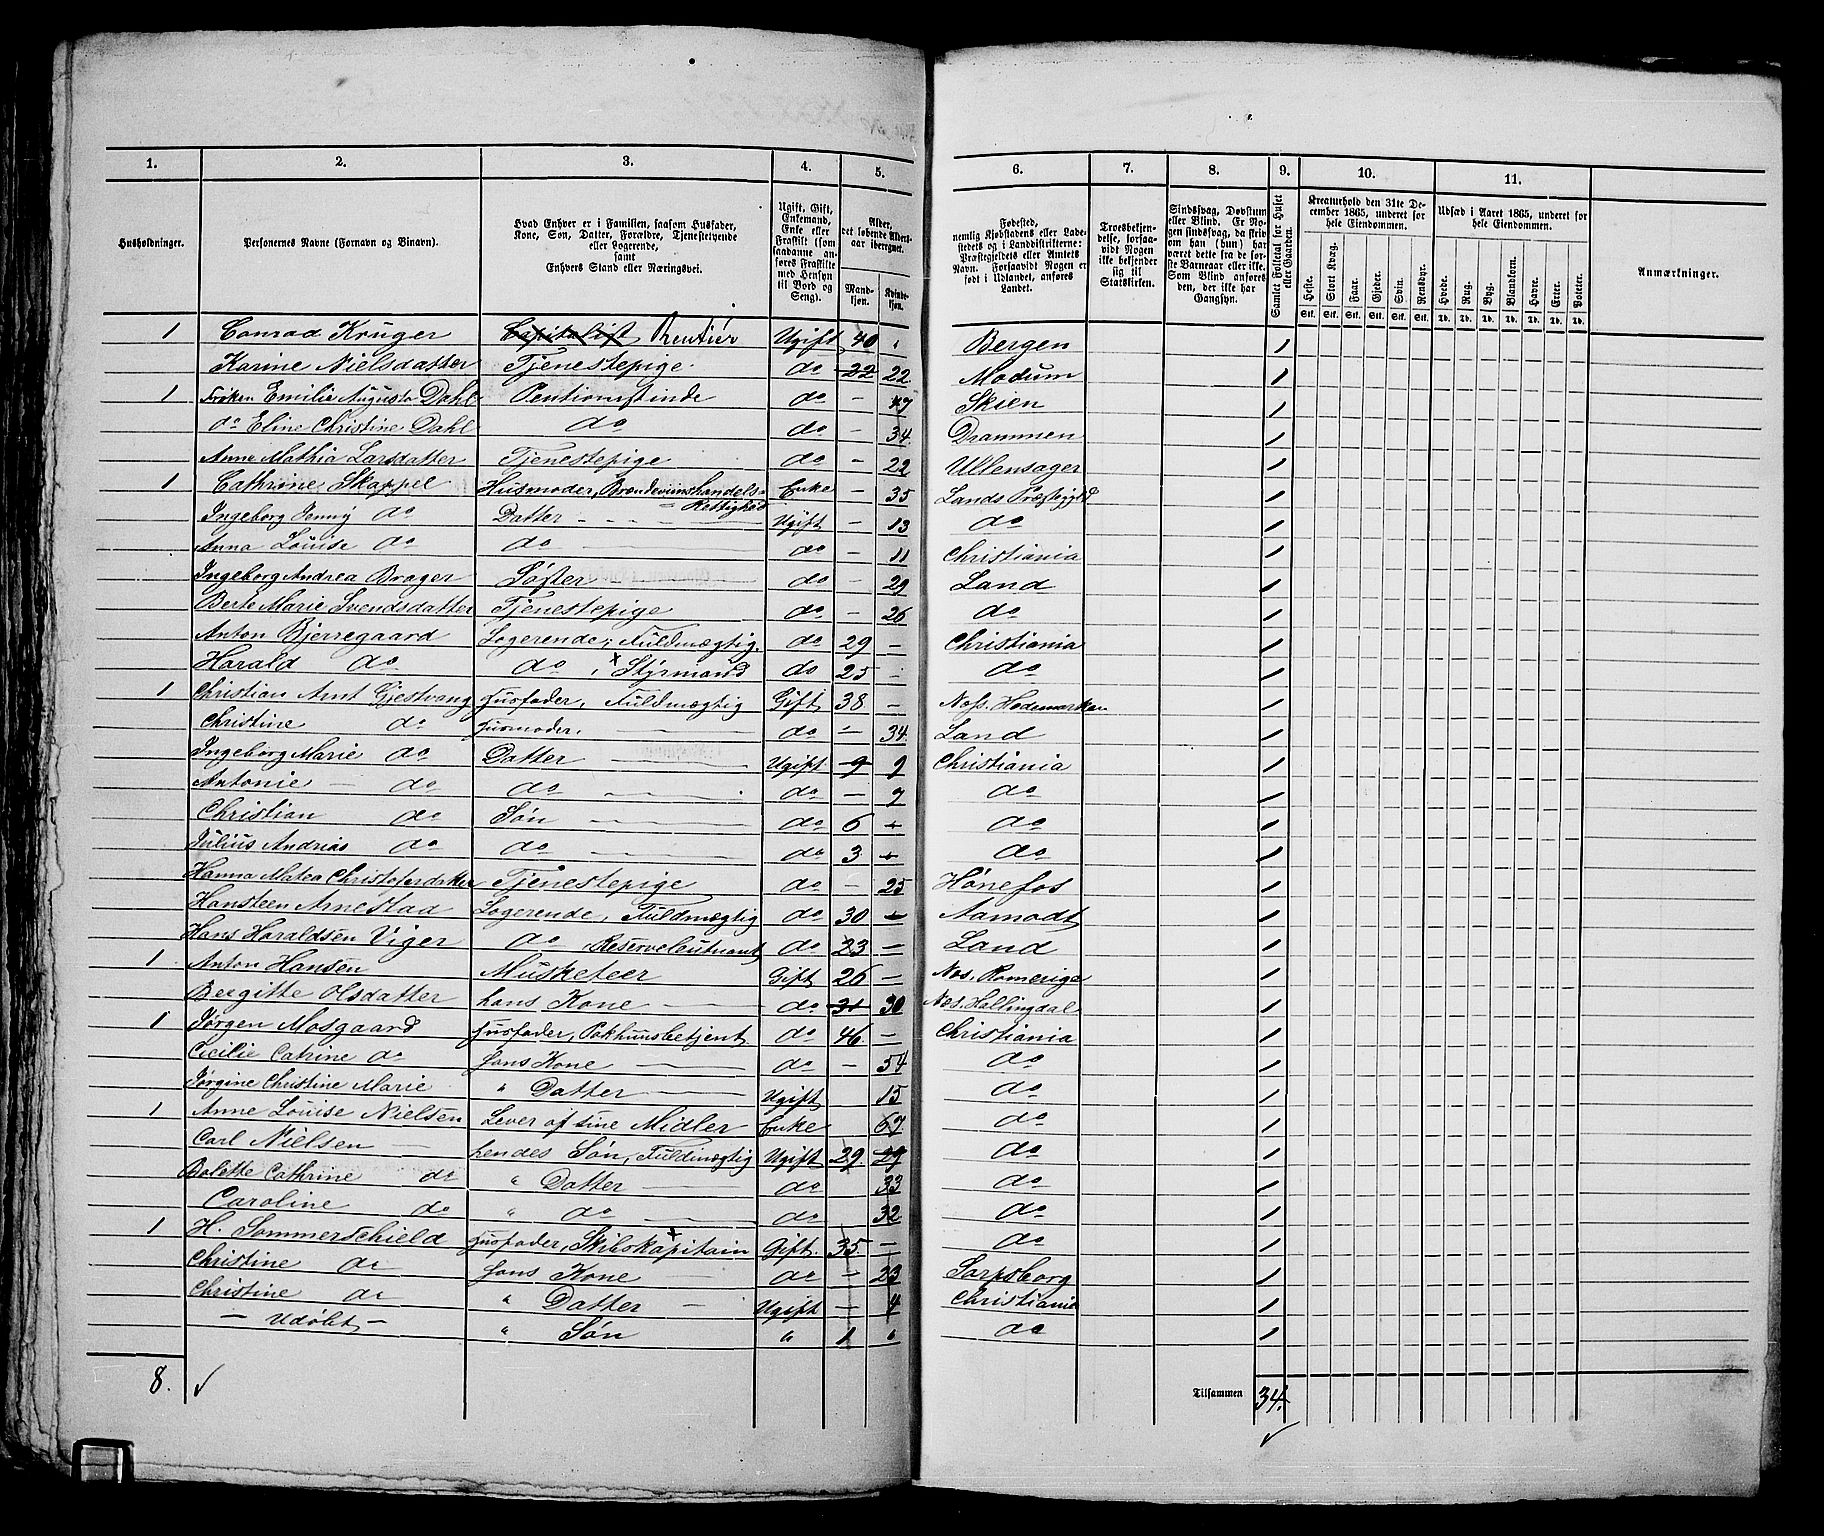 1. 2. 3. 4. 5. 6. 7. 8. 9. 10. 11.
Husholdninger.
Personernes Navne (Fornavn og Binavn).
Hvad Enhver er i Familien, saasom Husfader, Kone, Søn, Datter, Forældre, Tjenestetyende eller Logerende, samt Enhvers Stand eller Næringsvei.
Ugift, Gift, Enkemand, Enke eller Fraskilt (som saadanne anføres Fraskilte med Hensyn til Bord og Seng).
Alder, det løbende Alders-aar iberegnet.
Mand-kjøn. Kvinde-kjøn.
Fødested, nemlig Kjøbstadens eller Ladestedets og i Landdistrikterne: Præstegjeldets eller Amtets Navn. Forsaavidt Nogen er født i Udlandet, anføres Landet.
Troesbekjendelse, forsaavidt Nogen ikke bekjender sig til Statskirken.
Sindssvag, Døvstum eller Blind. Er Nogen sindssvag, da skrives om han (hun) har været dette fra de første Barneaar eller ikke. Som Blind anføres den, der ikke har Gangsyn.
Samlet Folketal for Huset eller Gaarden.
Kreaturhold den 31te December 1865, underet for hele Eiendommen.
Heste. Stort Kvæg. Faar. Gjeder. Svin. Rensdyr.
Stk. Stk. Stk. Stk. Stk. Stk.
Udsæd i Aaret 1865, underet for hele Eiendommen.
Hvede. Rug. Byg. Blandkorn. Havre. Erter. Poteter.
Td. Td. Td. Td. Td. Td. Td.
Anmærkninger.
1 Conrad Krüger Capitalist Rentiér Ugift 40 Bergen 1
Karine Nielsdatter Tjenestepige do 22 22 Modum 1
1 Frøken Emilie Augusta Dahl Pentionistinde do - 49 Skien 1
do Eline Christine Dahl do do - 34 Drammen 1
Anne Mathia Larsdatter Tjenestepige do - 22 Ullensager 1
1 Cathrine Skappel Husmoder, Brændeviinshandels-Rettighed Enke - 35 Lands Præstegjeld 1
Ingeborg Jenny do Datter Ugift - 13 do 1
Anna Louise do do do - 11 Christiania 1
Ingeborg Andrea Brager Søster do - 29 Land 1
Berte Marie Svendsdatter Tjenestepige do - 26 do 1
Anton Bjerregaard Logerende, Fuldmægtig do 29 - Christiania 1
Harald do do, Styrmand do 25 - do 1
1 Christian Arnt Gjestvang Husfader, Fuldmægtig Gift 38 - Nes. Hedemarken 1
Christine do Husmoder. do - 34 Land 1
Ingeborg Marie do Datter Ugift 9 9 Christiania 1
Antonie - do do do - 7 do 1
Christian do Søn do 6 - do 1
Julius Andrias do do do 3 - do 1
Hanna Matea Christofersdatter Tjenestepige do - 25 Hønefos 1
Hansteen Arnestad Logerende, Fuldmægtig do 30 - Aamodt 1
Hans Haraldsen Viger do Reserveleutnant do 23 - Land 1
1 Anton Hansen Musketeer Gift 26 - Nes. Romerige 1
Bergitte Olsdatter hans Kone do 31 30 Nes. Hallingdal 1
1 Jørgen Mosgaard Husfader, Pakhuusbetjent do 46 - Christiania 1
Cicilie Catrine do Hans Kone do - 54 do 1
Jørgine Christine Marie " Datter Ugift 15 do 1
1 Anne Louise Nielsen Lever af sine Midler Enke 67 do 1
Carl Nielsen hendes Søn, Fuldmægtig Ugift 29 29 do 1
Bolette Cathrine do " Datter do 33 do 1
Caroline do " do do 32 do 1
1 H. Sommerschield Husfader, Skibskapitain Gift. 35 - do 1
Christine do Hans Kone do - 23 Sarpsborg 1
Christine do " Datter Ugift - 4 Christiania 1
- Udøbt - " Søn " 1 " do 1
8. Tilsammen 34.